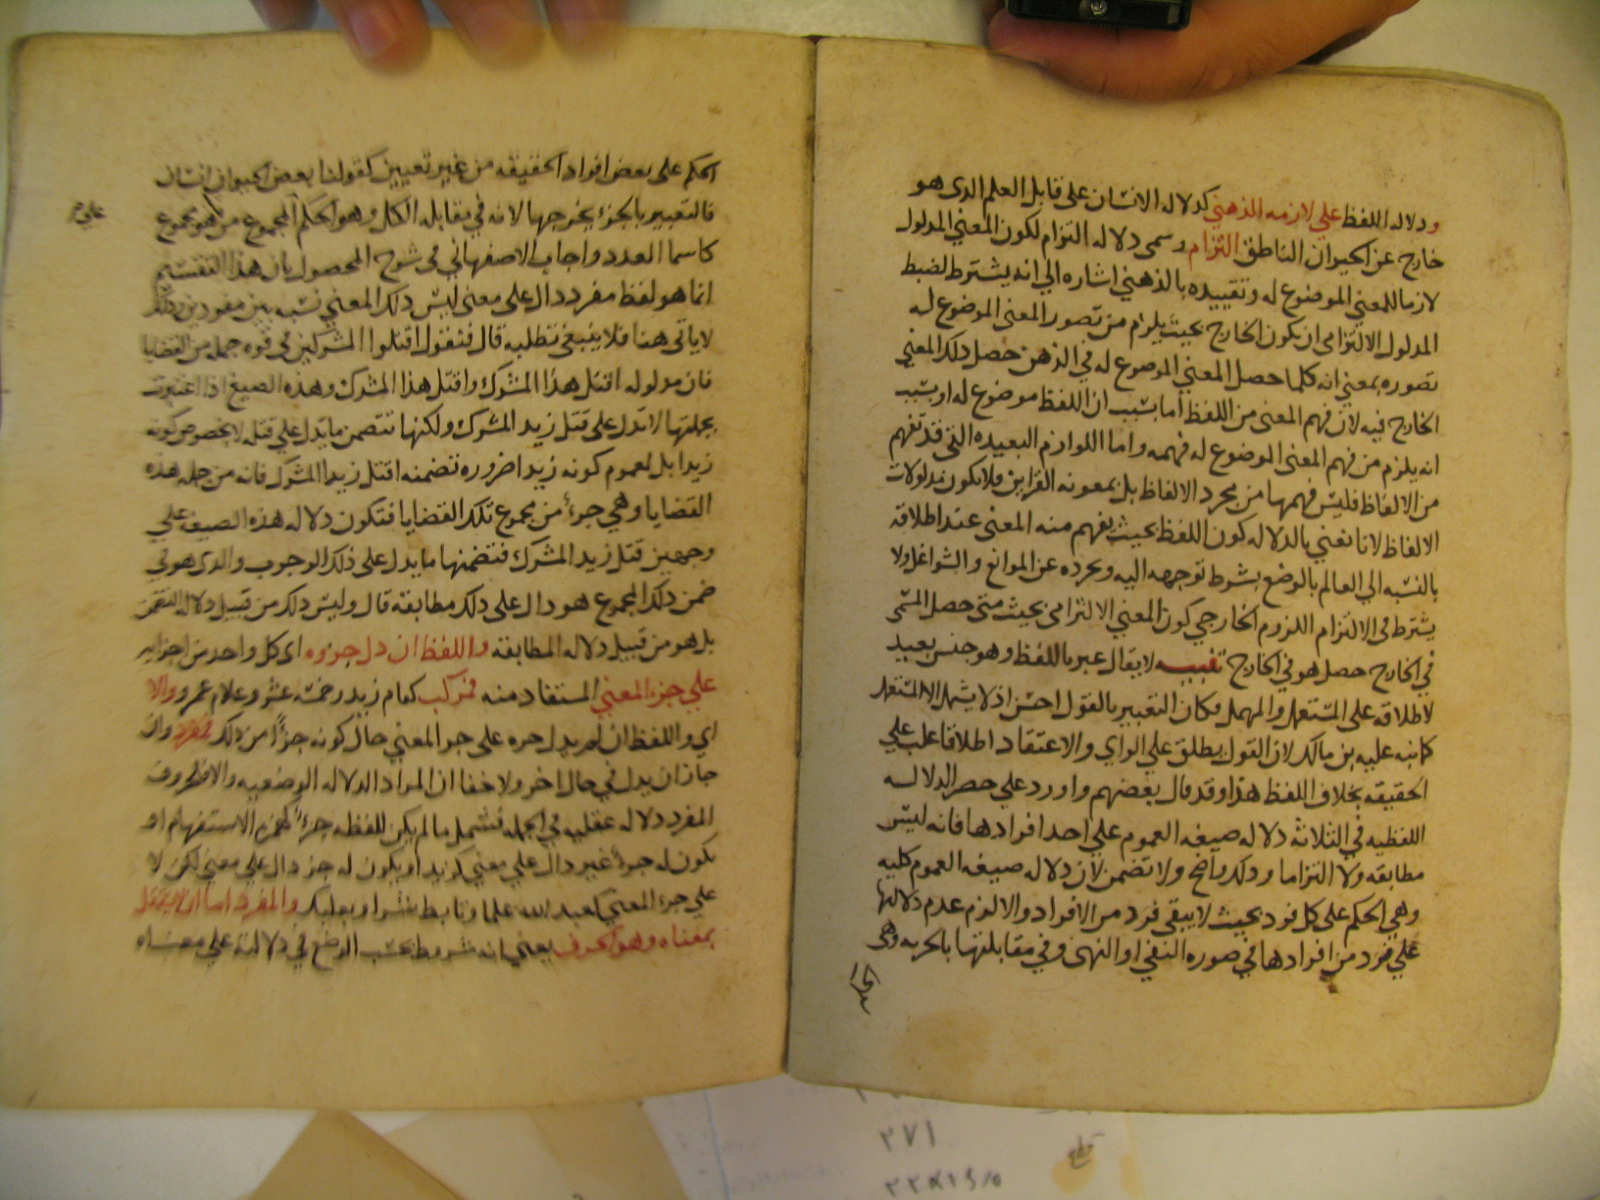 ودلاله اللفظ علي لازمه الذهني كدلاله الانسان على قابل العلم الدى هو
خارج عن الحيوان الناطق التزام وسمى دلاله التزام لكون المعني المدلول
لازما للمعني الموضوع له وتقييده بالذهني اشاره الي انه يشترط لضبط
المدلول الالتزامى ان يكون الخارج بحيث يلزم من تصور المعنى الموضوع له
تصوره بمعنى انه كلما حصل المعني الموضوع له في الذهن حصل دلك المعني
الخارج فيه لان فهم المعنى من اللفظ اما بسبب ان اللفظ موضوع له او بسبب
انه يلزم من فهم المعنى الموضوع له فهمه واما اللوازم البعيده التى قد تفهم
من الالفاظ فليس فهمها من مجرد الالفاظ بل بمعونه القراين فلا تكون مدلولات
الالفاظ لانا نعني بالدلاله كون اللفظ بحيث يفهم منه المعنى عند اطلاقه
بالنسبه الي العالم بالوضع بشرط توجهه اليه وتجرده عن الموانع والشواغل ولا
يشترط فى الالتزام اللزوم الخارجي كون المعني الالتزامى بحيث متى حصل المسمى
في الخارج حصل هو في الخارج تنبيه لا يقال عبر باللفظ وهو جنس بعيد
لاطلاقه على المستعمل والمهمل فكان التعبير بالقول احسن اذ لا يشمل الا المستعمل
كما نبه عليه بن مالك لان القول يطلق علي الراي والاعتقاد اطلاقا غلب علي
الحقيقه بخلاف اللفظ هذا وقد قال بعضهم واورد على حصر الدلاله
اللفظيه في الثلاثه دلاله صيغه العموم علي احد افرادها فانه ليس
مطابقه ولا التزاما ودلك واضح ولا تضمن لان دلاله صيغه العموم كليه
وهي الحكم على كل فرد بحيث لا يبقى فرد من الافراد والا لزم عدم دلالتها
علي فرد من افرادها في صوره النفي او النهى وفي مقابلتها بالجزيه وهى
الحكم
الحكم على بعض افراد الحقيقه من غير تعيين كقولنا بعض الحيوان انسان
فالتعبير بالجزء يخرجها لانه في مقابله الكل وهو الحكم المجموع من هو مجموع
كاسما العدد واجاب الاصفهاني فى شرح المحصول بان هذا التقسيم
انما هو لفظ مفرد دال على معنى ليس دلك المعني نسبه بين مفردين ودلك
لا ياتى هنا فلا ينبغى تطلبه قال فنقول اقتلوا المشركين فى قوه جمله من القضايا
فان مدلوله اقتل هذا المشرك واقتل هذا المشرك وهذه الصيغ اذا اعتبرت
بجملتها لا تدل على قتل زيد المشرك ولكنها تتضمن ما يدل علي قتله لا بخصوص كونه
زيدا بل لعموم كونه زيدا ضروره تضمنه اقتل زيدا المشرك فانه من جمله هذه
القضايا وهي جزء من مجموع تلك القضايا فتكون دلاله هذه الصيغه علي
وجهين قتل زيد المشرك فتضمنها ما يدل على ذلك الوجوب والدى هو في
ضمن دلك المجموع هو دال على دلك مطابقة قال وليس دلك من قبيل دلاله التضمن
بل هو من قبيل دلاله المطابقة واللفظ ان دل جزوه اى كل واحد من اجزايه
علي جزء المعني المستفاد منه فمركب كقام زيد وخمسه عشر وغلام عمرو والا
اي واللفظ ان لم يدل جزه على جز المعني حال كونه جزاً من دلك فمفرد وان
جاز ان يدل في حال اخر ولا خفا ان المراد الدلاله الوضعيه والا فلحروف
المفرد دلاله عقليه في الجمله فشمل ما لم يكن للفظه جزء كهمزه الاستفهام او
يكون له جزء غير دال علي معنى كزيد او يكون له جز دال علي معني لكن لا
علي جزء المعني كعبد الله علما وتابط شرا وبعلبك والمفرد اما ان لا يستقل
بمعناه وهو الحرف يعني انه مشروط بحسب الوضع في دلالته علي معناه
٢٧١